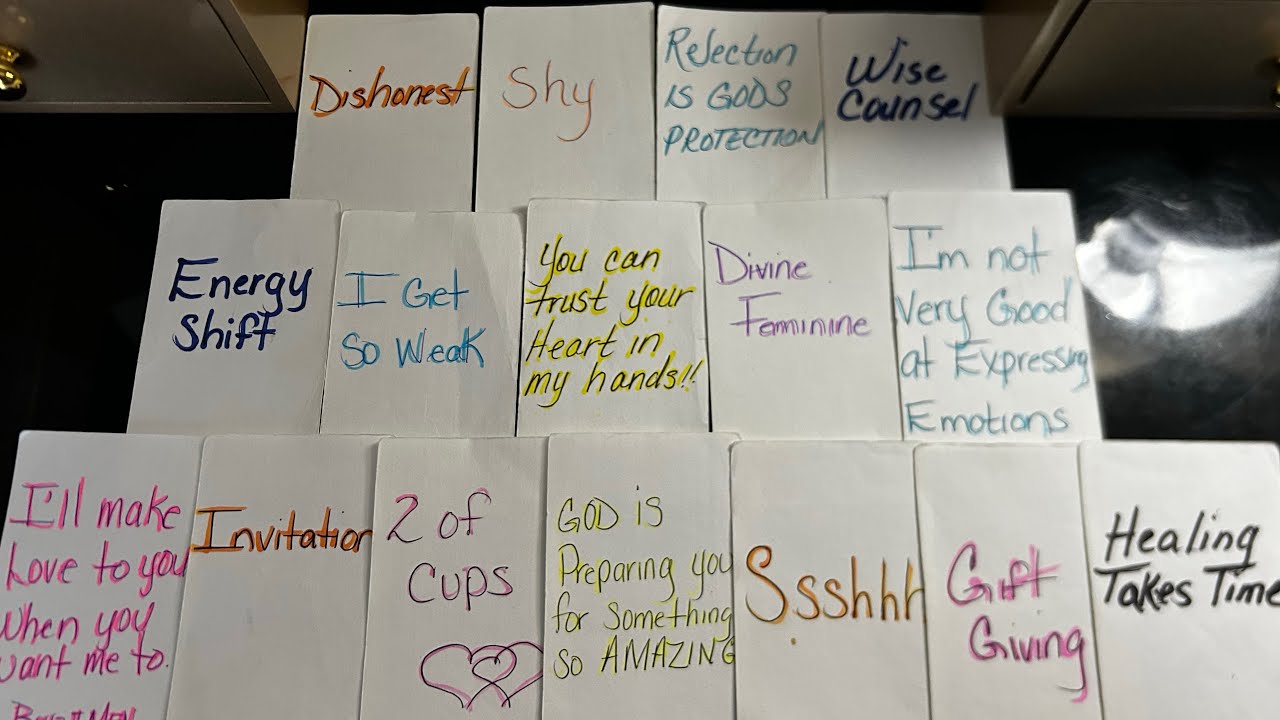 Dishonest
Shy
Rejection
IS GODS
PROTECTION
Wise
Counsel
Energy
Shift
I Get
So Weak
You can
trust your
Heart in
my hands!!
Divine
Feminine
I'm not
Very Good
at Expressing
Emotions
I'll make
Love to you
When you
want me to.
Invitation
2 of
Cups
GOD is
Preparing you
for Something
so AMAZING
Ssshhh
Gift
Giving
Healing
Takes Time